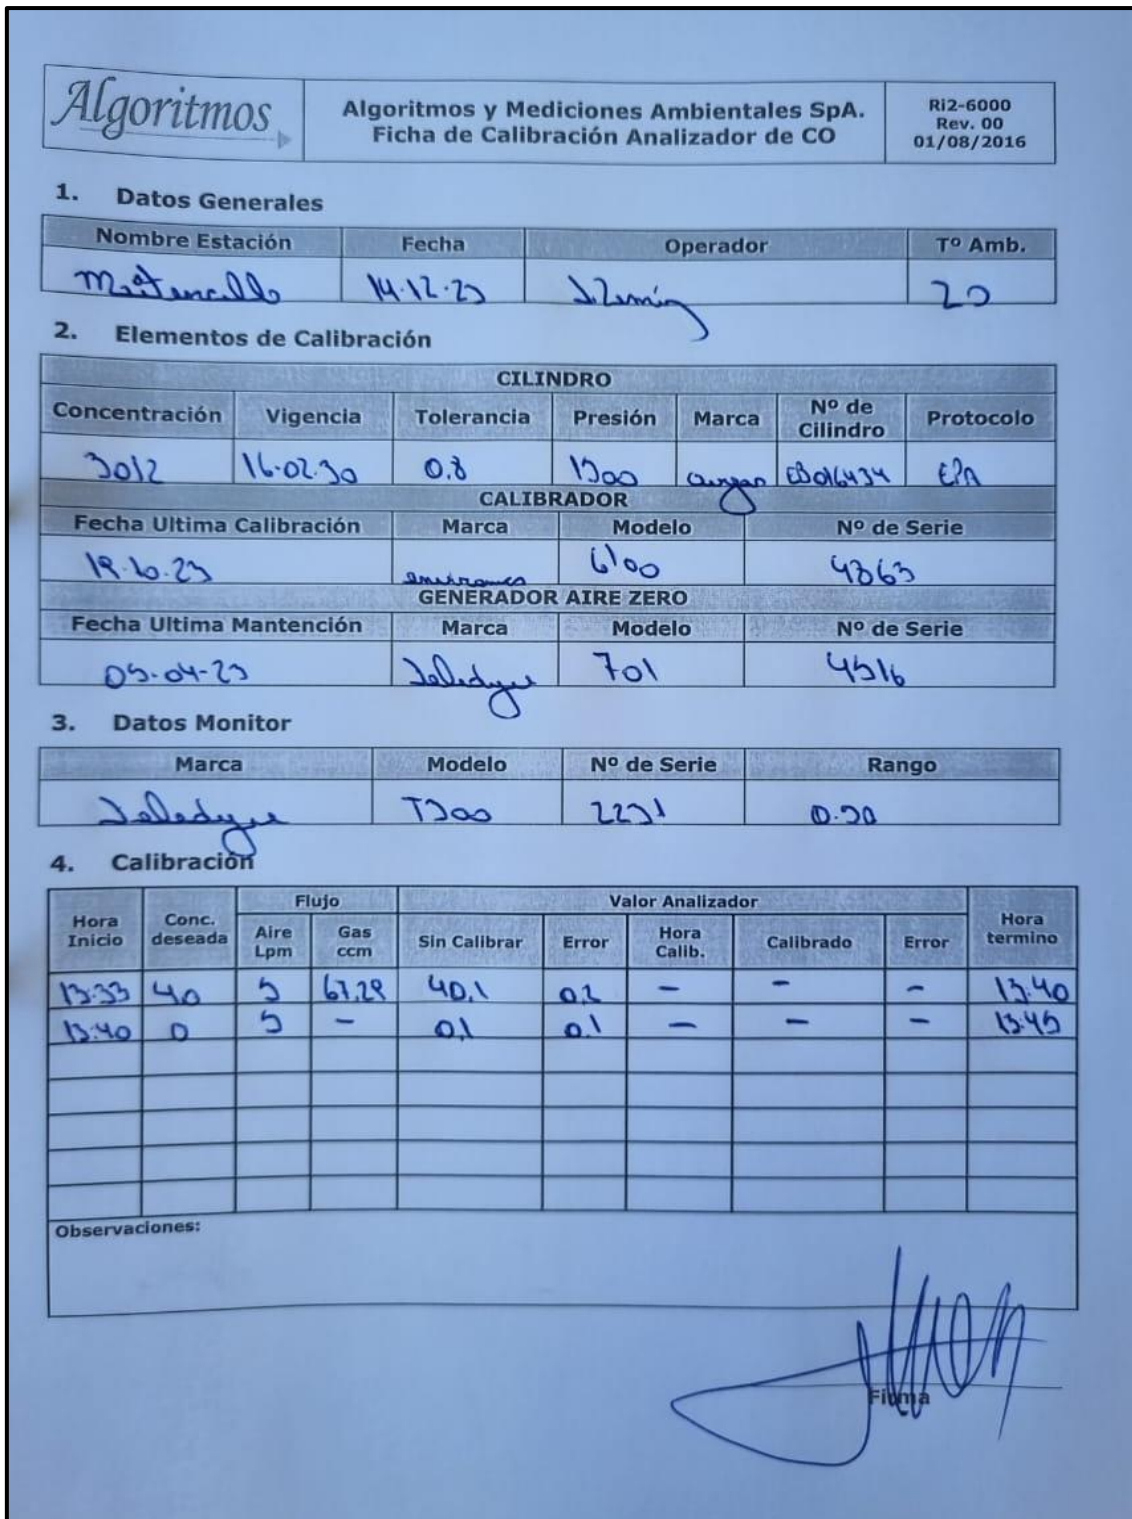 Algoritmos
Algoritmos y Mediciones Ambientales SpA.
Ficha de Calibración Analizador de CO
Ri2-6000
Rev. 00
01/08/2016
1. Datos Generales
Nombre Estación Fecha Operador Tº Amb.
14.12.23 20
2. Elementos de Calibración
CILINDRO
Concentración Vigencia Tolerancia Presión Marca Nº de Cilindro Protocolo
3012 16.02.30 0.8 EB016434 EPA
CALIBRADOR
Fecha Ultima Calibración Marca Modelo Nº de Serie
6100
GENERADOR AIRE ZERO
Fecha Ultima Mantención Marca Modelo Nº de Serie
Teledyne 701
3. Datos Monitor
Marca Modelo Nº de Serie Rango
Teledyne T300
4. Calibración
Hora Inicio Conc. deseada Flujo Valor Analizador Hora termino
Aire Lpm Gas ccm Sin Calibrar Error Hora Calib. Calibrado Error
13:33 40 5 40,1 - - - 13:40
13:40 0 5 - 0,1 0.1 - - - 13:45
Observaciones:
Firma